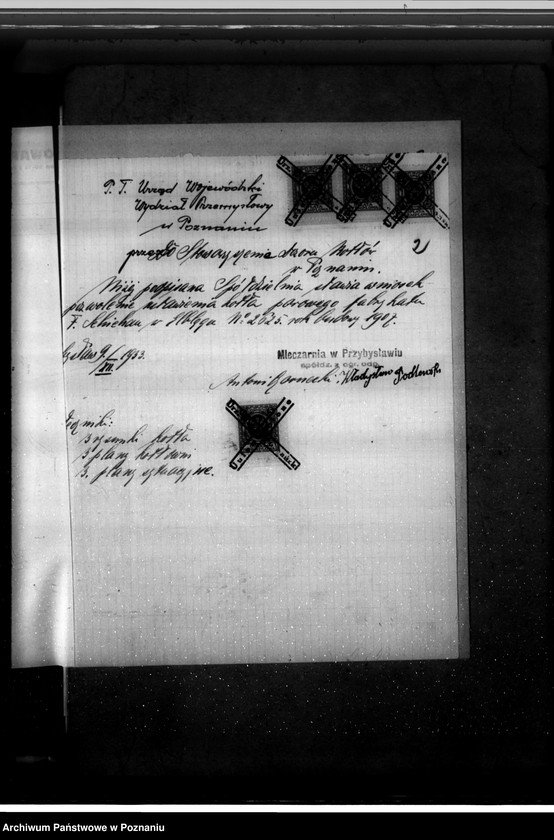 P. T. Urząd Wojewódzki
Wydział Przemysłowy
w Poznaniu
przez Stowarzyszenie dozoru Kotłów
w Poznaniu.
2
Niżej podpisana Spółdzielnia stawia wniosek
pozwolenie ustawienia kotła parowego fabrykatu
F. Schichau, w Elblągu No 2625. rok budowy 1907.
9/XII 1933.
Mleczarnia w Przybysławiu
spółdz. z ogr. odp.
Antoni Władysław Podlewski
3 rysunki kotła
3 plany kotłowni
3. plany sytuacyjne.
Archiwum Państwowe w Poznaniu